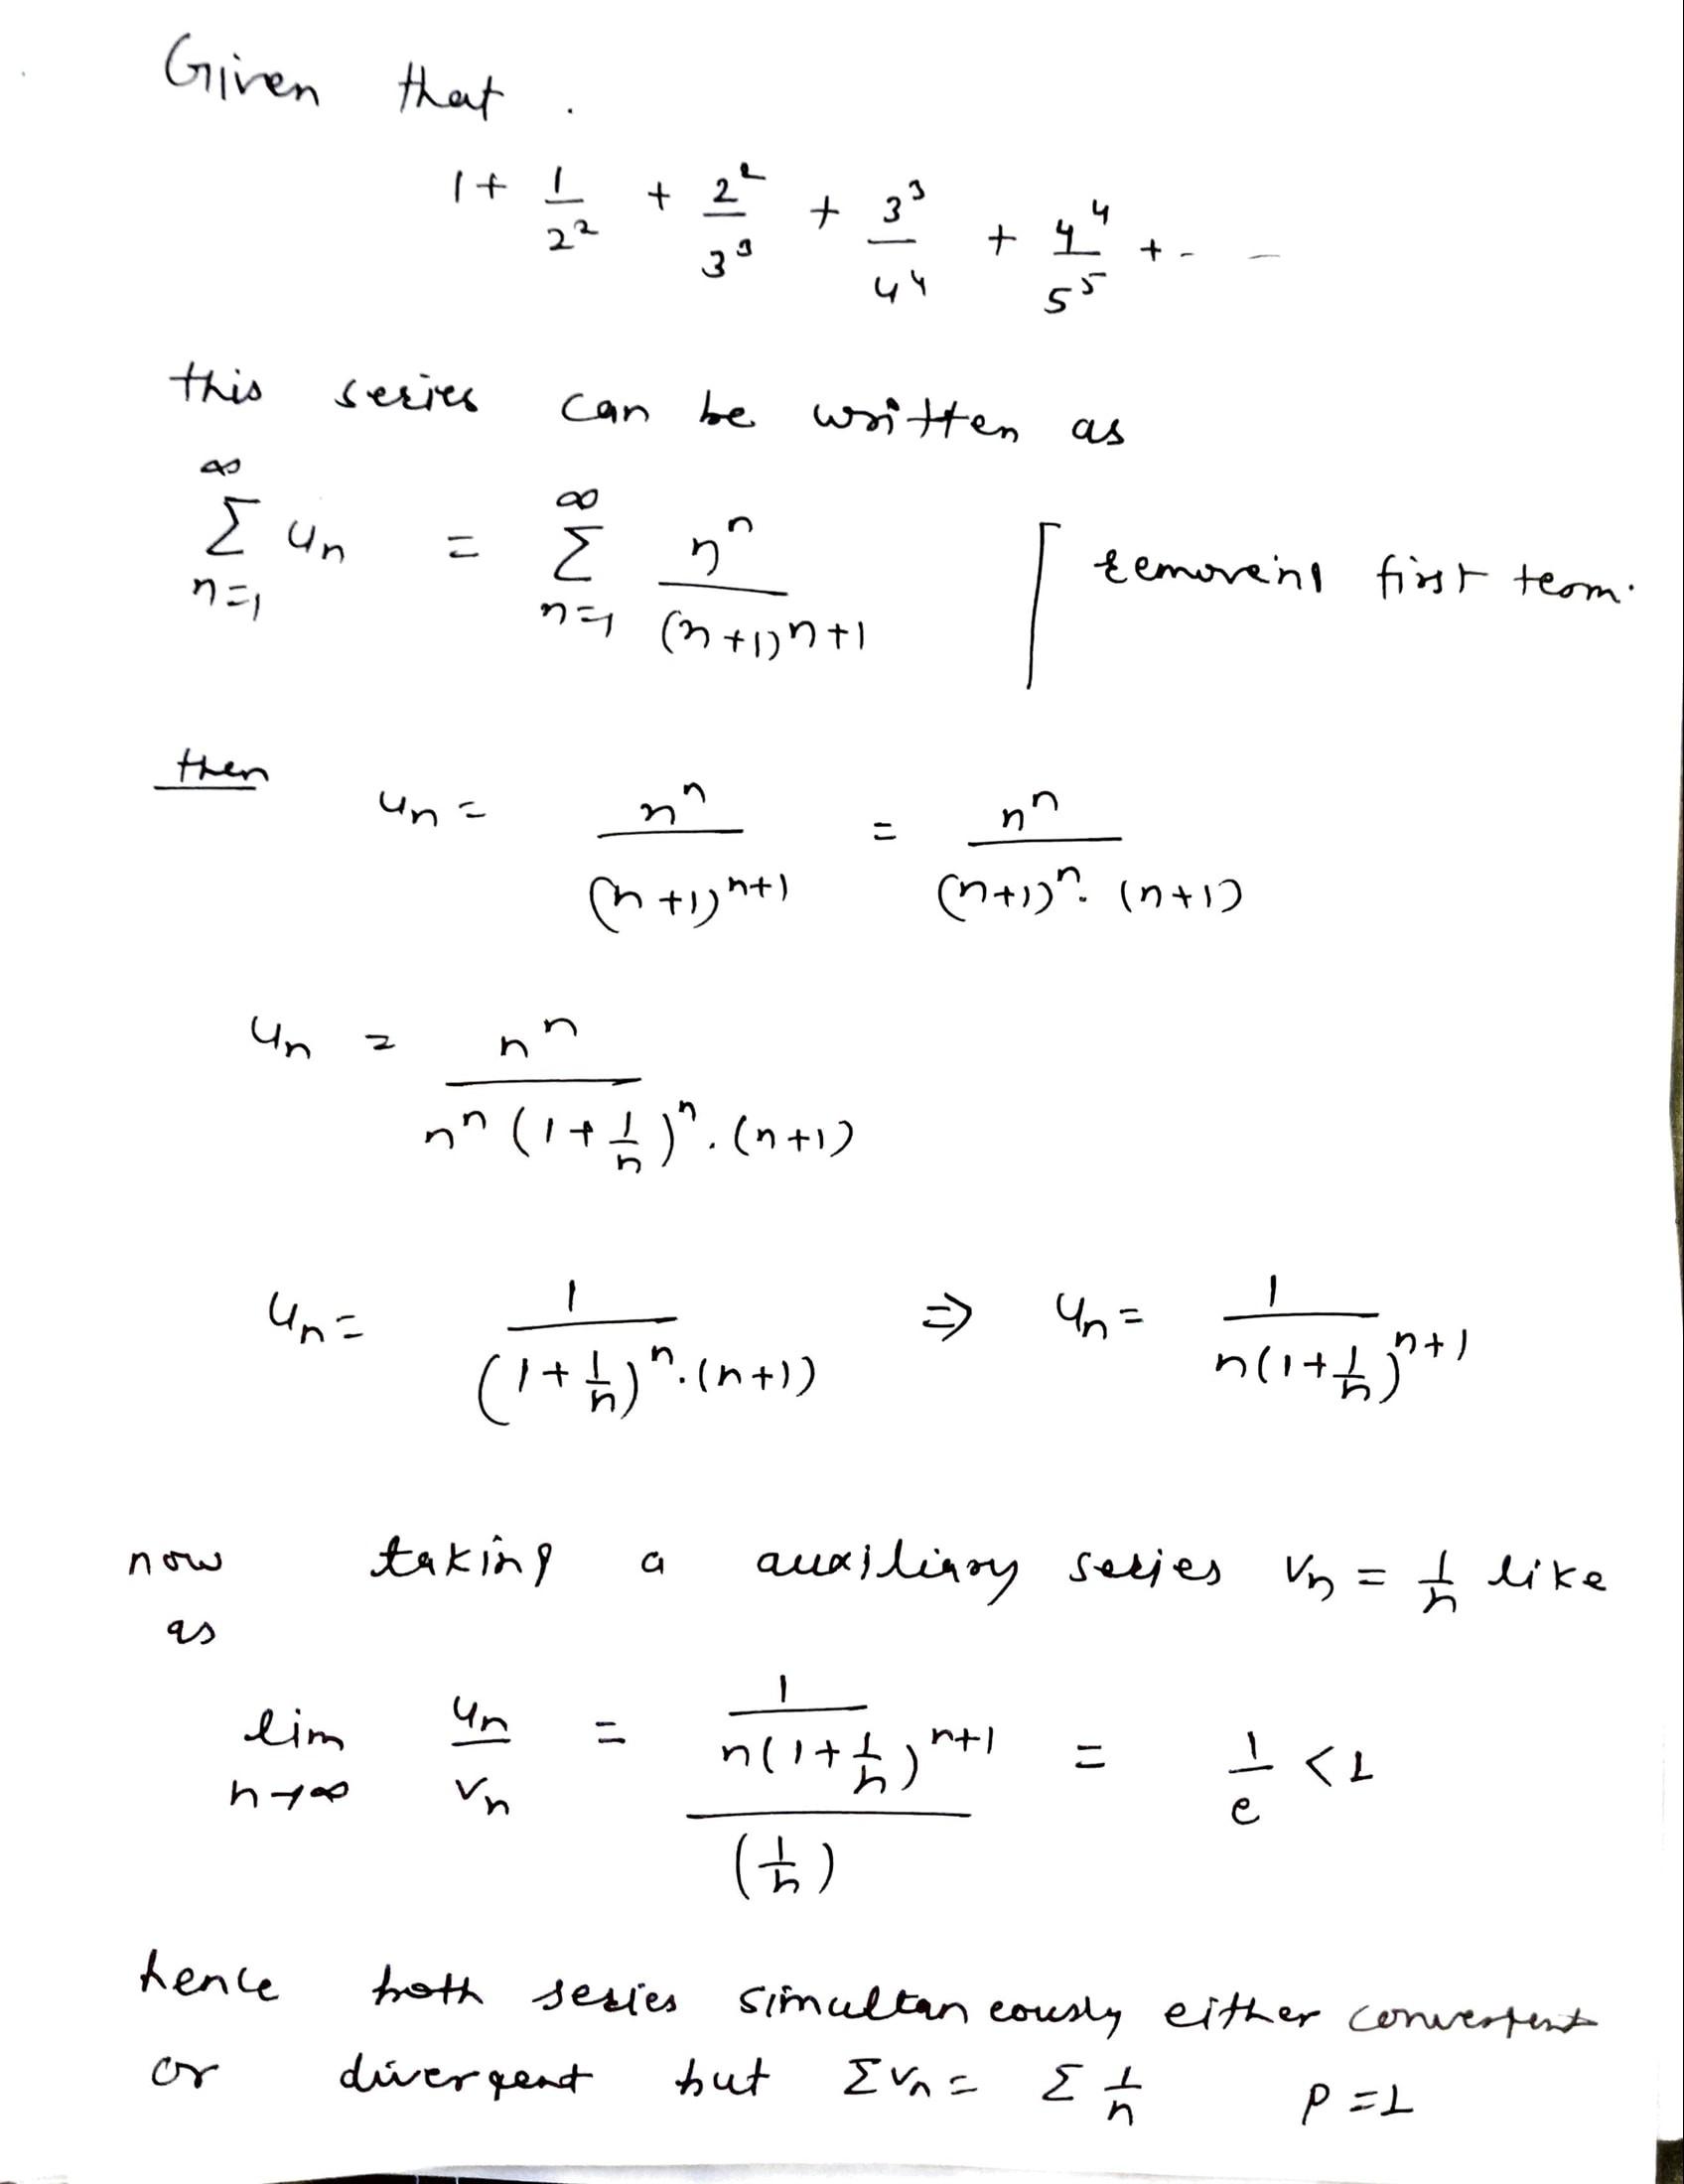 Given that .
1 + 1/2² + 2²/3³ + 3³/4⁴ + 4⁴/5⁵ + - -
this series can be written as
∞ Σ n=1 uₙ = ∞ Σ n=1 nⁿ/(n+1)ⁿ⁺¹ [ removing first term.
then uₙ = nⁿ/(n+1)ⁿ⁺¹ = nⁿ/(n+1)ⁿ.(n+1)
uₙ = nⁿ/nⁿ(1+1/n)ⁿ.(n+1)
uₙ = 1/(1+1/n)ⁿ.(n+1) ⇒ uₙ = 1/n(1+1/n)ⁿ⁺¹
now taking a auxiliary series vₙ = 1/n like
as
lim n→∞ uₙ/vₙ = (1/n(1+1/n)ⁿ⁺¹)/(1/n) = 1/e < 1
hence both series simultaneously either convergent
or divergent but Σvₙ = Σ 1/n p=1